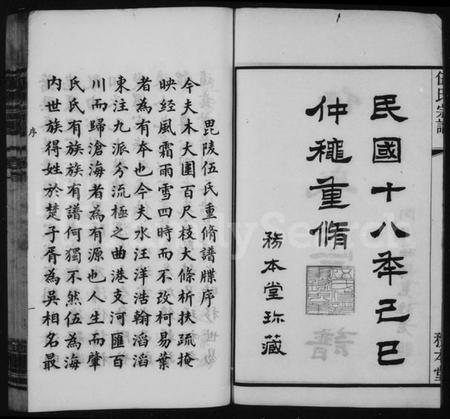 民國十八年己巳
仲穐重脩
務本堂珎藏
伍氏宗譜
務本堂
毘陵伍氏重脩譜牒序
今夫木大圍百尺枝大條析扶疏掩
映經風霜雨雪四時而不改柯易葉
者為有本也今夫水汪洋浩翰滔滔
東注九派分流極之曲港支河匯百
川而歸滄海者為有源也人生而肇
氏氏有族族有譜何獨不然伍為海
內世族得姓於楚子胥為吳相名最
序